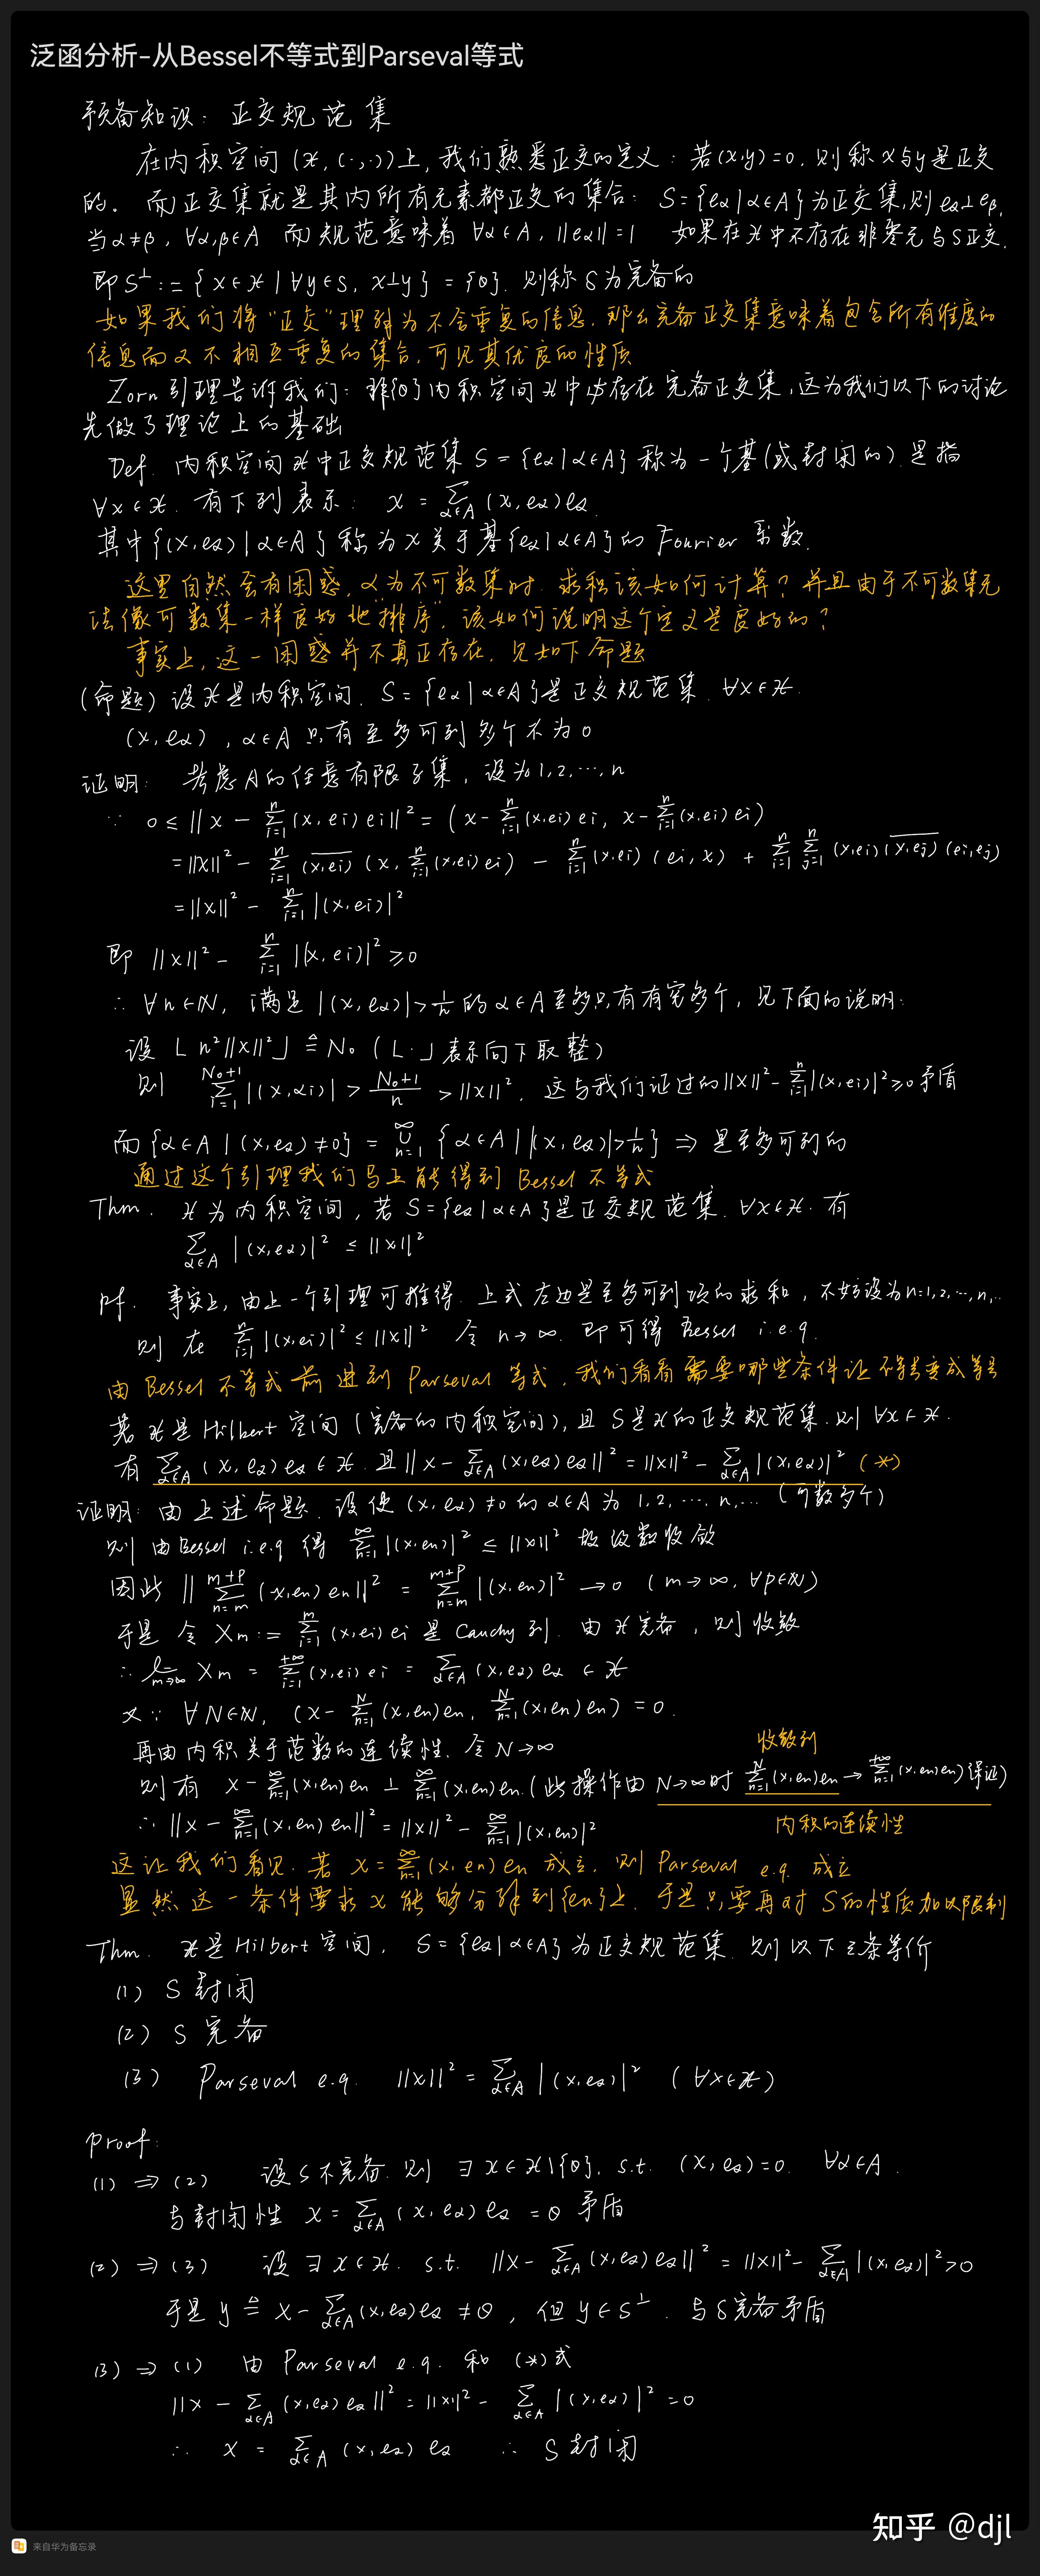 泛函分析-从Bessel不等式到Parseval等式
预备知识: 正交规范集
在内积空间 (ℋ, (·,·))上, 我们熟悉正交的定义: 若(x,y)=0, 则称 x与y是正交
的。而正交集就是其内所有元素都正交的集合: S={eα|α∈A}为正交集,则eα⊥eβ,
当α≠β, ∀α,β∈A 而规范意味着 ∀α∈A, ||eα||=1 如果在ℋ中不存在非零元与S正交.
即S^⊥:={x∈ℋ|∀y∈S, x⊥y}={θ}. 则称S为完备的
如果我们将“正交”理解为不含重复的信息, 那么完备正交集意味着包含所有维度的
信息而又不相互重复的集合, 可见其优良的性质
Zorn引理告诉我们: 非{θ}内积空间ℋ中必存在完备正交集, 这为我们以下的讨论
先做了理论上的基础
Def. 内积空间ℋ中正交规范集 S={eα|α∈A}称为一个基(或封闭的).是指
∀x∈ℋ. 有下列表示: x=∑_{α∈A}(x,eα)eα.
其中{(x,eα)|α∈A}称为x关于基{eα|α∈A}的Fourier系数.
这里自然会有困惑, α为不可数集时. 求和该如何计算? 并且由于不可数集无
法像可数集一样良好地“排序”, 该如何说明这个定义是良好的?
事实上, 这一困惑并不真正存在, 见如下命题
(命题) 设ℋ是内积空间. S={eα|α∈A}是正交规范集. ∀x∈ℋ.
(x,eα), α∈A 只有至多可列多个不为0
证明: 考虑A的任意有限子集, 设为1,2,…,n
∵ 0≤||x-∑_{i=1}^n(x,ei)ei||²=(x-∑_{i=1}^n(x,ei)ei, x-∑_{i=1}^n(x,ei)ei)
=||x||²-∑_{i=1}^n \overline{(x,ei)}(x,∑_{i=1}^n(x,ei)ei)-∑_{i=1}^n(x,ei)(ei,x)+∑_{i=1}^n∑_{j=1}^n(x,ei)\overline{(x,ej)}(ei,ej)
=||x||²-∑_{i=1}^n|(x,ei)|²
即 ||x||²-∑_{i=1}^n|(x,ei)|²≥0
∴ ∀n∈ℕ, 满足|(x,eα)|>1/n的α∈A至多只有有穷多个, 见下面的说明:
设 ⌊n²||x||²⌋≜N₀ (⌊·⌋表示向下取整)
则 ∑_{i=1}^{N₀+1}|(x,αi)|>(N₀+1)/n>||x||². 这与我们证过的||x||²-∑_{i=1}^n|(x,ei)|²≥0矛盾
而{α∈A|(x,eα)≠0}=⋃_{n=1}^∞{α∈A||(x,eα)|>1/n} ⇒ 是至多可列的
通过这个引理我们马上能得到 Bessel 不等式
Thm. ℋ为内积空间, 若 S={eα|α∈A}是正交规范集. ∀x∈ℋ. 有
∑_{α∈A}|(x,eα)|²≤||x||²
pf. 事实上, 由上一个引理可推得. 上式左边是至多可列项的求和, 不妨设为n=1,2,…,n,…
则在 ∑_{i=1}^n|(x,ei)|²≤||x||² 令 n→∞. 即可得 Bessel i.e.q.
由 Bessel 不等式前进到 Parseval 等式, 我们看看需要哪些条件让不等号变成等号
若ℋ是Hilbert空间(完备的内积空间), 且S是ℋ的正交规范集. 则 ∀x∈ℋ.
有 ∑_{α∈A}(x,eα)eα∈ℋ. 且||x-∑_{α∈A}(x,eα)eα||²=||x||²-∑_{α∈A}|(x,eα)|² (*)
证明: 由上述命题. 设使(x,eα)≠0的α∈A为 1,2,…,n,… (可数多个)
则由Bessel i.e.q 得 ∑_{n=1}^∞|(x,en)|²≤||x||² 故级数收敛
因此 ||∑_{n=m}^{m+p}(x,en)en||²=∑_{n=m}^{m+p}|(x,en)|²→0 (m→∞, ∀p∈ℕ)
于是 令 Xm:=∑_{i=1}^m(x,ei)ei 是 Cauchy列. 由ℋ完备, 则收敛
∴ lim_{m→∞} Xm=∑_{i=1}^{+∞}(x,ei)ei=∑_{α∈A}(x,eα)eα∈ℋ
又∵ ∀N∈ℕ, (x-∑_{n=1}^N(x,en)en, ∑_{n=1}^N(x,en)en)=0.
再由内积关于范数的连续性. 令N→∞
收敛列
则有 x-∑_{n=1}^∞(x,en)en⊥∑_{n=1}^∞(x,en)en.(此操作由N→∞时∑_{n=1}^N(x,en)en→∑_{n=1}^{+∞}(x,en)en)保证)
内积的连续性
∴ ||x-∑_{n=1}^∞(x,en)en||²=||x||²-∑_{n=1}^∞|(x,en)|²
这让我们看见. 若 x=∑_{n=1}^∞(x,en)en 成立. 则 Parseval e.q. 成立
显然这一条件要求x能够分解到{en}上. 于是只要再对S的性质加以限制
Thm. ℋ是Hilbert空间. S={eα|α∈A}为正交规范集. 则以下三条等价
(1) S封闭
(2) S完备
(3) Parseval e.q. ||x||²=∑_{α∈A}|(x,eα)|² (∀x∈ℋ)
Proof:
(1)⇒(2) 设S不完备. 则 ∃x∈ℋ\{θ}. s.t. (x,eα)=0. ∀α∈A.
与封闭性 x=∑_{α∈A}(x,eα)eα=θ 矛盾
(2)⇒(3) 设∃x∈ℋ. s.t. ||x-∑_{α∈A}(x,eα)eα||²=||x||²-∑_{α∈A}|(x,eα)|²>0
于是 y≜x-∑_{α∈A}(x,eα)eα≠θ, 但 y∈S^⊥. 与S完备矛盾
(3)⇒(1) 由 Parseval e.q. 和 (*)式
||x-∑_{α∈A}(x,eα)eα||²=||x||²-∑_{α∈A}|(x,eα)|²=0
∴ x=∑_{α∈A}(x,eα)eα ∴ S封闭
知乎 @djl
来自华为备忘录